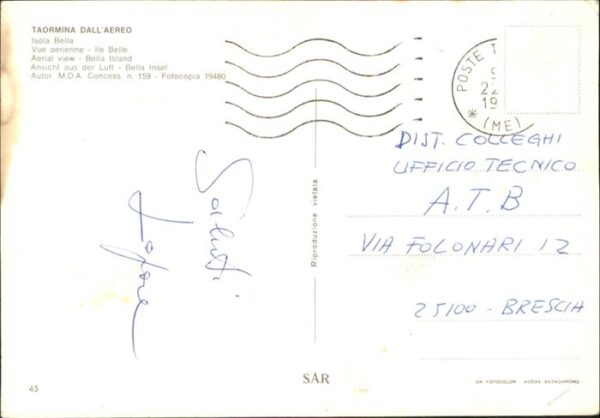 TAORMINA DALL'AEREO
Isola Bella
Vue aerienne - Ile Belle
Aerial view - Bella Island
Ansicht aus der Luft - Bella Insel
Autor. M.D.A. Concess. n 159 - Fotocopia 19480
POSTE T
22
19
* (ME)
DIST. COLLEGHI
UFFICIO TECNICO
A.T.B
VIA FOLONARI 12
25100 - BRESCIA
Saluti
Riproduzione vietata
SAR
45
DA FOTOCOLOR KODAK EKTACHROME